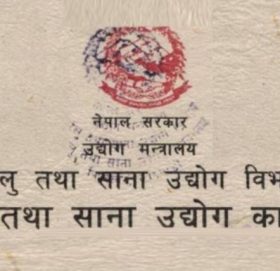 नेपाल सरकार
उद्योग मन्त्रालय
लु तथा साना उद्योग विभ
तथा साना उद्योग का